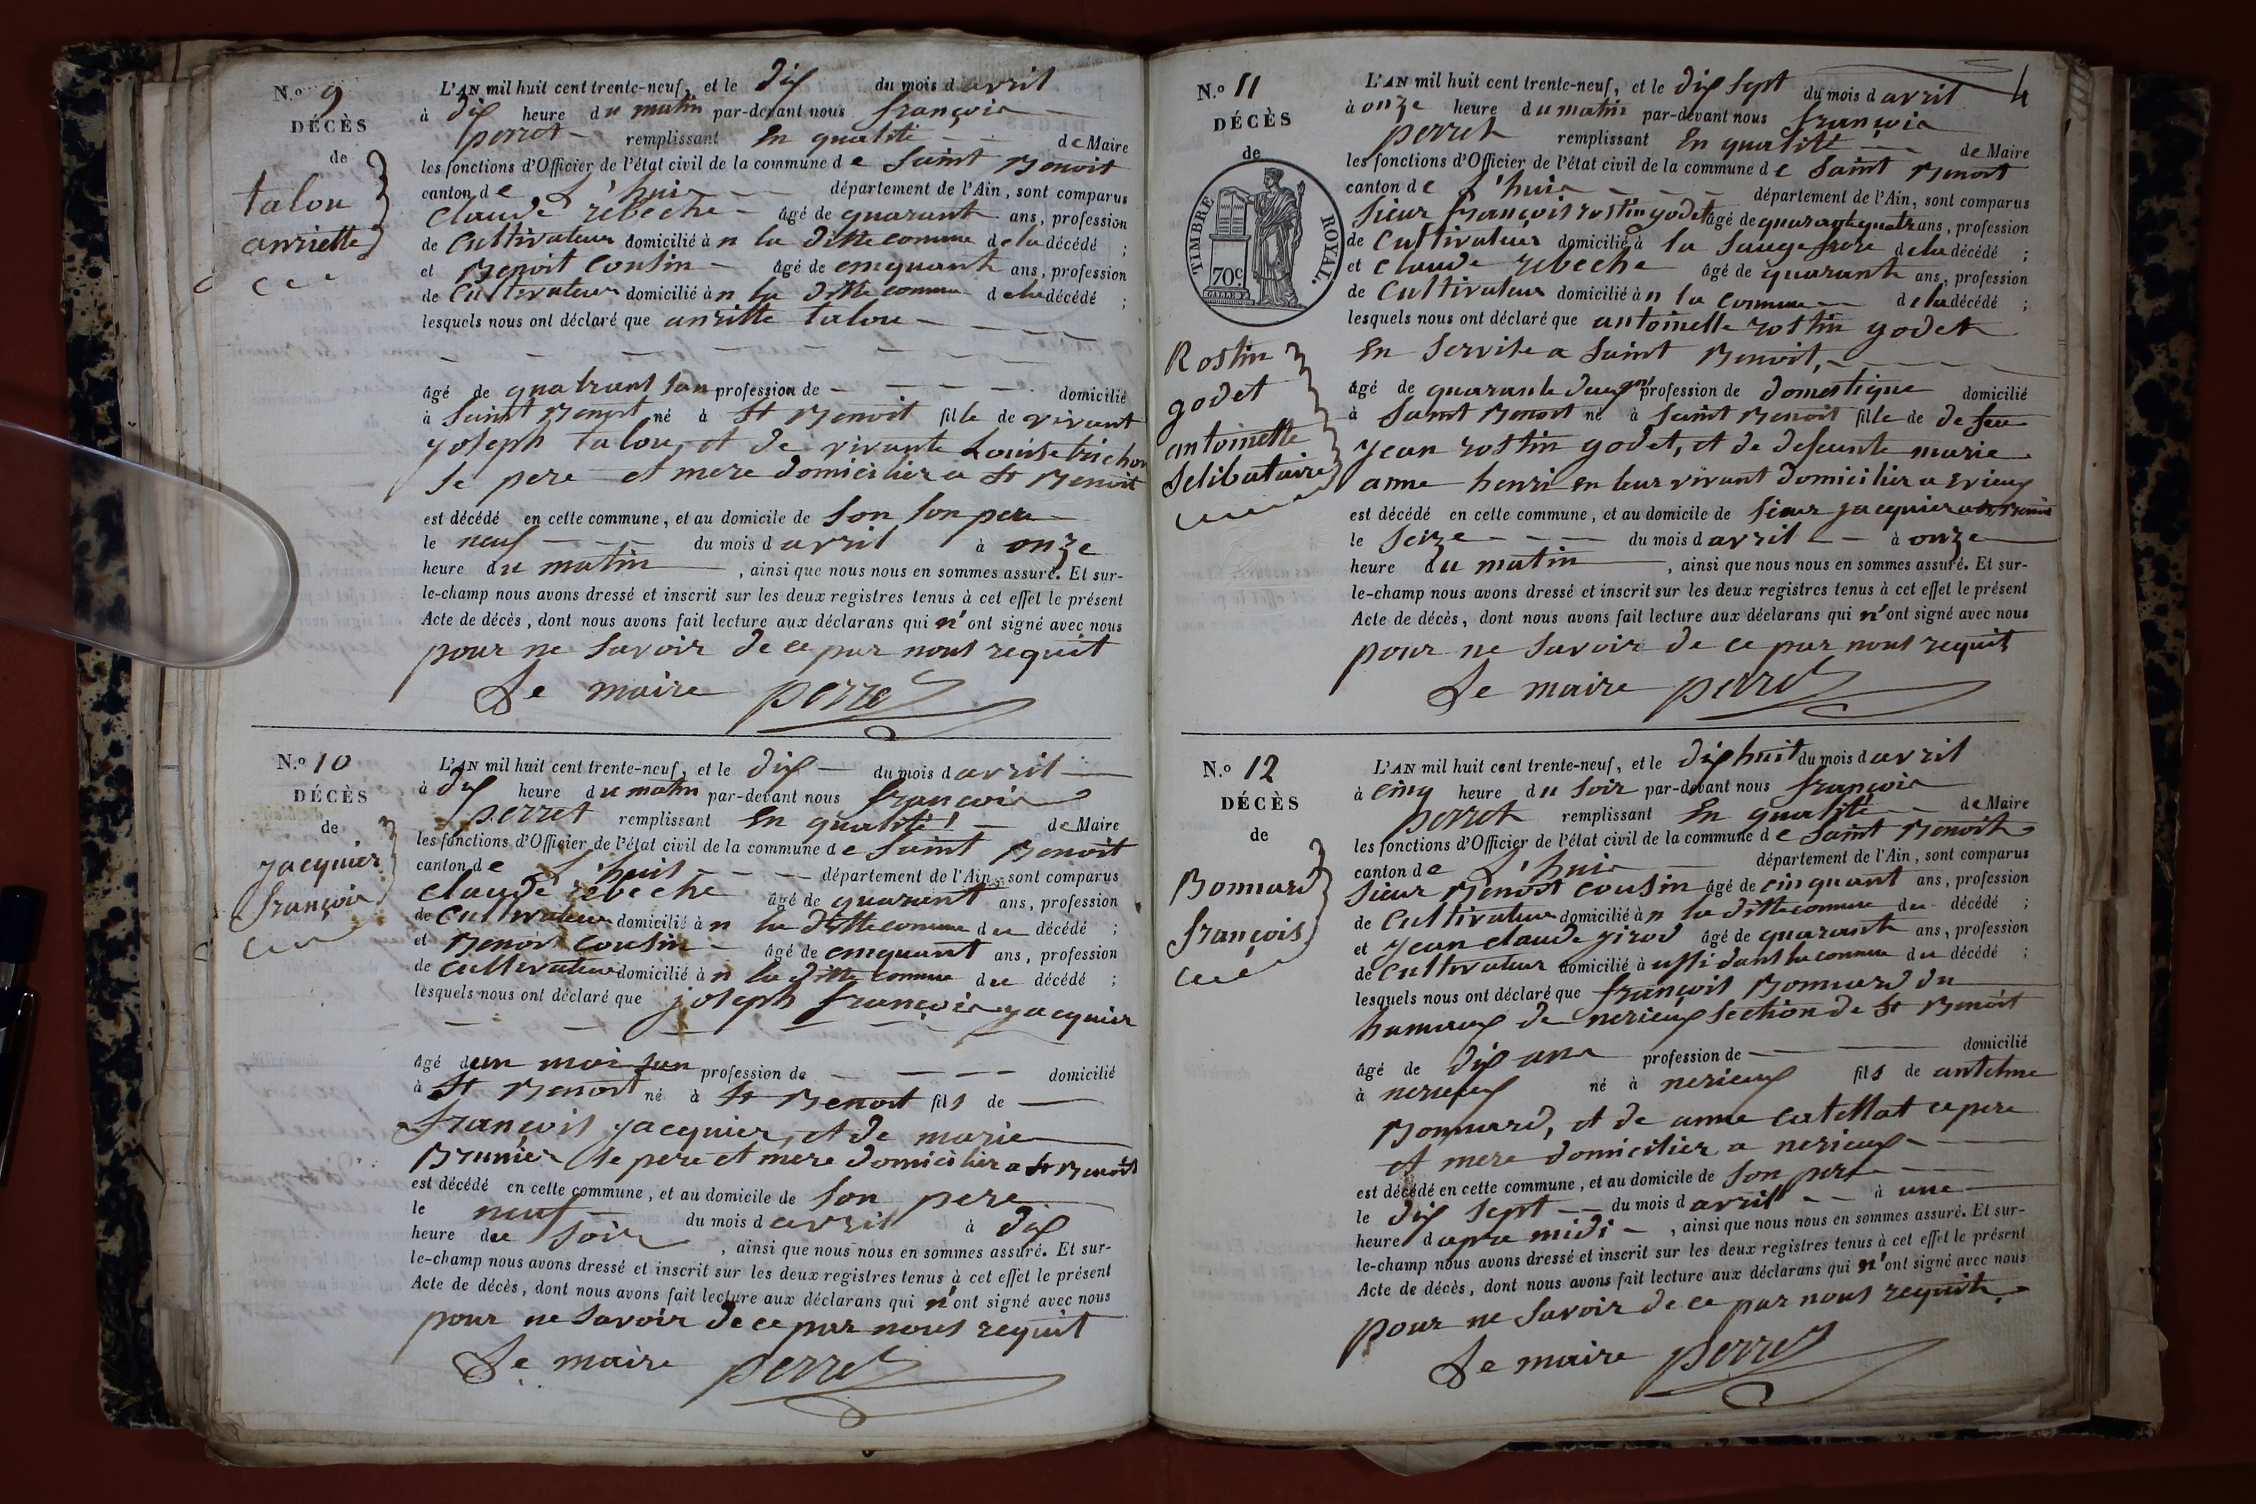 N.º 9
DÉCÈS
de
talon
anriette
L'AN mil huit cent trente-neuf, et le dix du mois d avril
à dix heure du matin par-devant nous françois
perret remplissant En qualité de Maire
les fonctions d'Officier de l'état civil de la commune de Saint Benoit
canton de L'huis département de l'Ain, sont comparus
Claude rebeche âgé de quarant ans, profession
de Cultivateur domicilié à n la ditte commune de la décédé ;
et Benoit Cousin âgé de cinquant ans, profession
de Cultivateur domicilié à n la ditte commune de la décédé ;
lesquels nous ont déclaré que anriette talon
âgé de profession de domicilié
à Saint Benoit né à St Benoit fille de vivant
joseph talon, et de vivante Louise
le pere et mere domicilier a St Benoit
est décédé en cette commune, et au domicile de son son pere
le neuf du mois d avril à onze
heure du matin, ainsi que nous nous en sommes assuré. Et sur-
le-champ nous avons dressé et inscrit sur les deux registres tenus à cet effet le présent
Acte de décès, dont nous avons fait lecture aux déclarans qui n'ont signé avec nous
pour ne savoir de ce par nous requit
Le maire perret
N.º 10
DÉCÈS
de
jacquier
françois
L'AN mil huit cent trente-neuf, et le dix du mois d avril
à dix heure du matin par-devant nous françois
perret remplissant En qualité de Maire
les fonctions d'Officier de l'état civil de la commune de Saint Benoit
canton de L'huis département de l'Ain, sont comparus
Claude rebeche âgé de quarant ans, profession
de Cultivateur domicilié à n la ditte commune du décédé ;
et Benoit Cousin âgé de cinquant ans, profession
de Cultivateur domicilié à n la ditte commune du décédé ;
lesquels nous ont déclaré que joseph françois jacquier
âgé d un mois profession de domicilié
à St Benoit né à St Benoit fils de
françois jacquier, et de marie
Brunier le pere et mere domicilier a St Benoit
est décédé en cette commune, et au domicile de son pere
le neuf du mois d avril à dix
heure du soir, ainsi que nous nous en sommes assuré. Et sur-
le-champ nous avons dressé et inscrit sur les deux registres tenus à cet effet le présent
Acte de décès, dont nous avons fait lecture aux déclarans qui n'ont signé avec nous
pour ne savoir de ce par nous requit
Le maire perret
4
N.º 11
DÉCÈS
de
TIMBRE ROYAL.
70c
Rostin
godet
antoinette
Selibataire
L'AN mil huit cent trente-neuf, et le dix sept du mois d avril
à onze heure du matin par-devant nous françois
perret remplissant En qualité de Maire
les fonctions d'Officier de l'état civil de la commune de Saint Benoit
canton de L'huis département de l'Ain, sont comparus
Sieur françois rostin godet âgé de quarant quatre ans, profession
de Cultivateur domicilié à la Sauge frere de la décédé ;
et Claude rebeche âgé de quarante ans, profession
de Cultivateur domicilié à n la commune de la décédé ;
lesquels nous ont déclaré que antoinette rostin godet
En Servise a Saint Benoit,
âgé de quarante deux ans profession de domestique domicilié
à Saint Benoit né à Saint Benoit fille de de feu
jean rostin godet, et de defeunte marie
anne henri en leur vivant domicilier a
est décédé en cette commune, et au domicile de sieur jacquier a St Benoit
le Seize du mois d avril à onze
heure du matin, ainsi que nous nous en sommes assuré. Et sur-
le-champ nous avons dressé et inscrit sur les deux registres tenus à cet effet le présent
Acte de décès, dont nous avons fait lecture aux déclarans qui n'ont signé avec nous
pour ne savoir de ce par nous requit
Le maire perret
N.º 12
DÉCÈS
de
Bonnard
françois
L'AN mil huit cent trente-neuf, et le dix huit du mois d avril
à cinq heure du soir par-devant nous françois
perret remplissant En qualité de Maire
les fonctions d'Officier de l'état civil de la commune de Saint Benoit
canton de L'huis département de l'Ain, sont comparus
Sieur Benoit Cousin âgé de cinquant ans, profession
de Cultivateur domicilié à n la ditte commune du décédé ;
et jean claude girod âgé de quarante ans, profession
de Cultivateur domicilié à ussi dans la commune du décédé ;
lesquels nous ont déclaré que françois Bonnard du
hamaux de nerieux section de St Benoit
âgé de dix ans profession de domicilié
à nerieux né à nerieux fils de antelme
Bonnard, et de anne catellat ce pere
et mere domicilier a nerieux
est décédé en cette commune, et au domicile de son pere
le dix sept du mois d avril à une
heure d apre midi, ainsi que nous nous en sommes assuré. Et sur-
le-champ nous avons dressé et inscrit sur les deux registres tenus à cet effet le présent
Acte de décès, dont nous avons fait lecture aux déclarans qui n'ont signé avec nous
pour ne savoir de ce par nous requit
Le maire perret